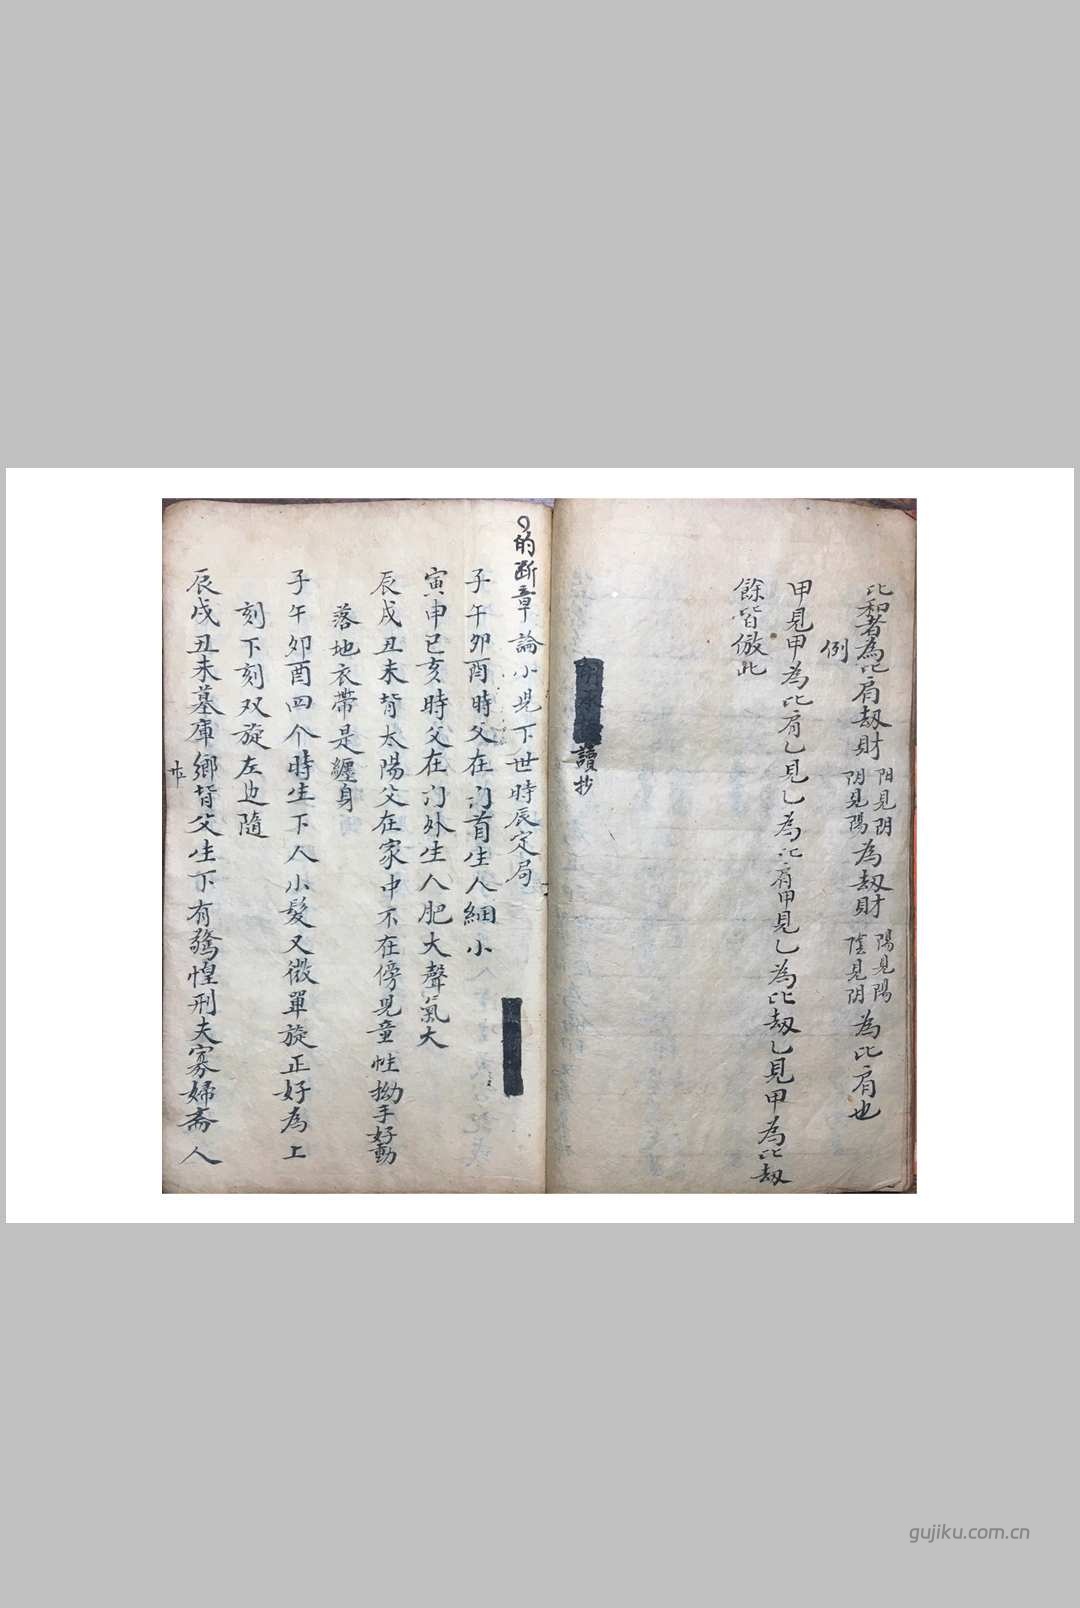 比和者為比肩劫財 阳見阴 阴見陽 為劫財 陽見陽 陰見阴 為比肩也
例
甲見甲為比肩乙見乙為比肩甲見乙為比劫乙見甲為比劫
餘皆倣此
讀抄
的断章論小児下世時辰定局
子午卯酉時父在门首生人細小
寅申巳亥時父在门外生人肥大聲氣大
辰戌丑未背太陽父在家中不在傍児童性拗手好動
落地衣帶是纏身
子午卯酉四个時生下人小髮又微單旋正好為上
刻下刻双旋左边隨
辰戌丑未墓庫鄉背父生下有驚惶刑夫寡婦斋人
gujiku.com.cn